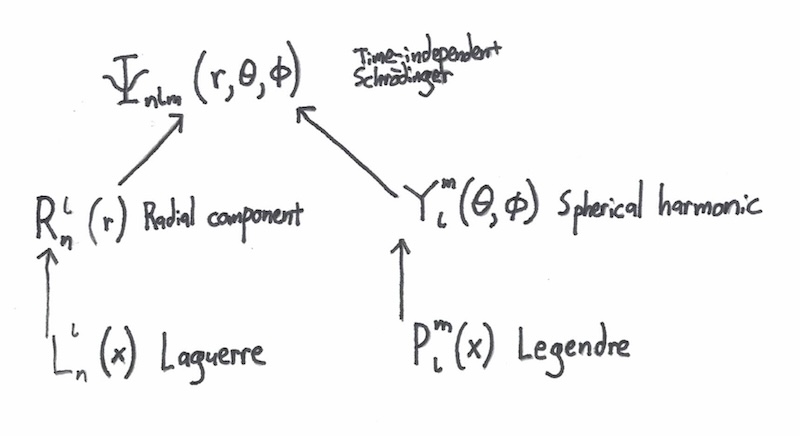 Ψnlm (r,θ,ϕ)
Time-independent
Schrödinger
Rₙˡ (r) Radial component
Yₗᵐ(θ,ϕ) Spherical harmonic
Lₙˡ (x) Laguerre
Pₗᵐ(x) Legendre